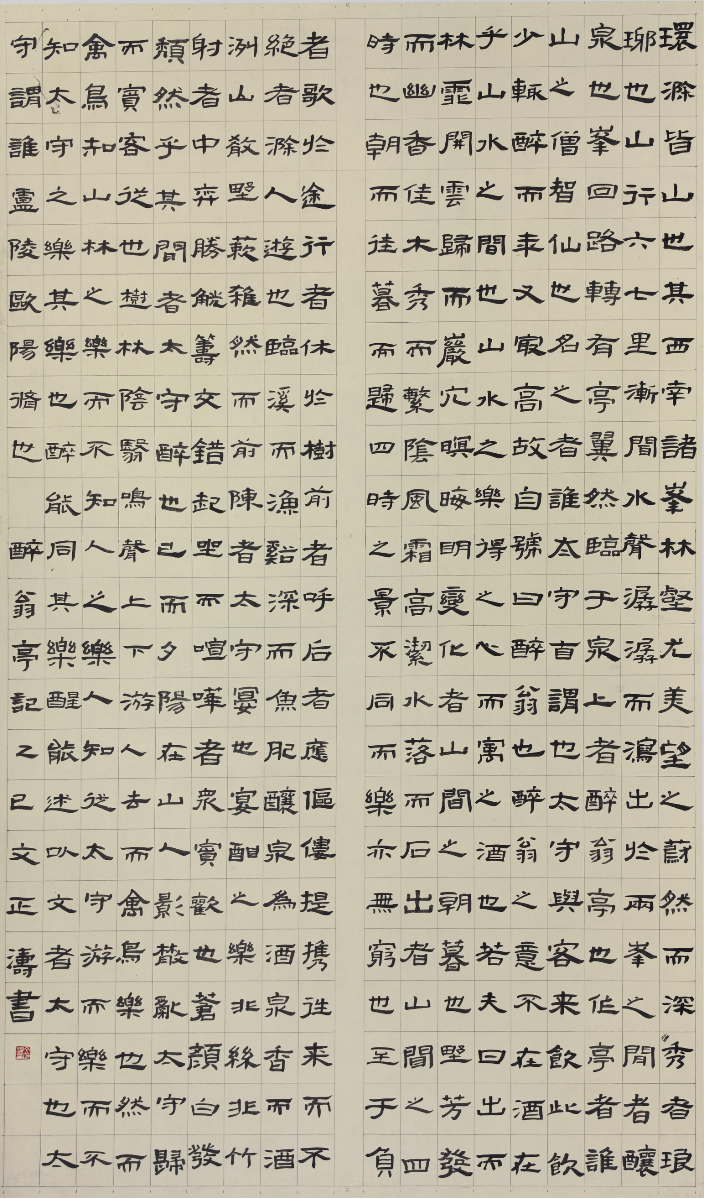 環滁皆山也其西南諸峯林壑尤美望之蔚然而深秀者琅
琊也山行六七里漸聞水聲潺潺而瀉出於兩峯之間者釀
泉也峯回路轉有亭翼然臨于泉上者醉翁亭也作亭者誰
山之僧智仙也名之者誰太守自謂也太守與客来飲此飲
少輒醉而年又最高故自號曰醉翁也醉翁之意不在酒在
乎山水之間也山水之樂得之心而寓之酒也若夫日出而
林霏開雲歸而巖穴暝晦明變化者山間之朝暮也野芳發
而幽香佳木秀而繁陰風霜高潔水落而石出者山間之四
時也朝而往暮而歸四時之景不同而樂亦無窮也至于負
者歌於途行者休於樹前者呼后者應傴僂提携往来而不
絶者滁人遊也臨溪而漁谿深而魚肥釀泉為酒泉香而酒
洌山肴野蔌雜然而前陳者太守宴也宴酣之樂非絲非竹
射者中弈勝觥籌交錯起坐而喧嘩者衆賓歡也蒼顔白發
頹然乎其間者太守醉也已而夕陽在山人影散亂太守歸
而賓客從也樹林陰翳鳴聲上下游人去而禽鳥樂也然而
禽鳥知山林之樂而不知人之樂人知從太守游而樂而不
知太守之樂其樂也醉能同其樂醒能述以文者太守也太
守謂誰廬陵歐陽脩也 醉翁亭記乙巳文正濤書